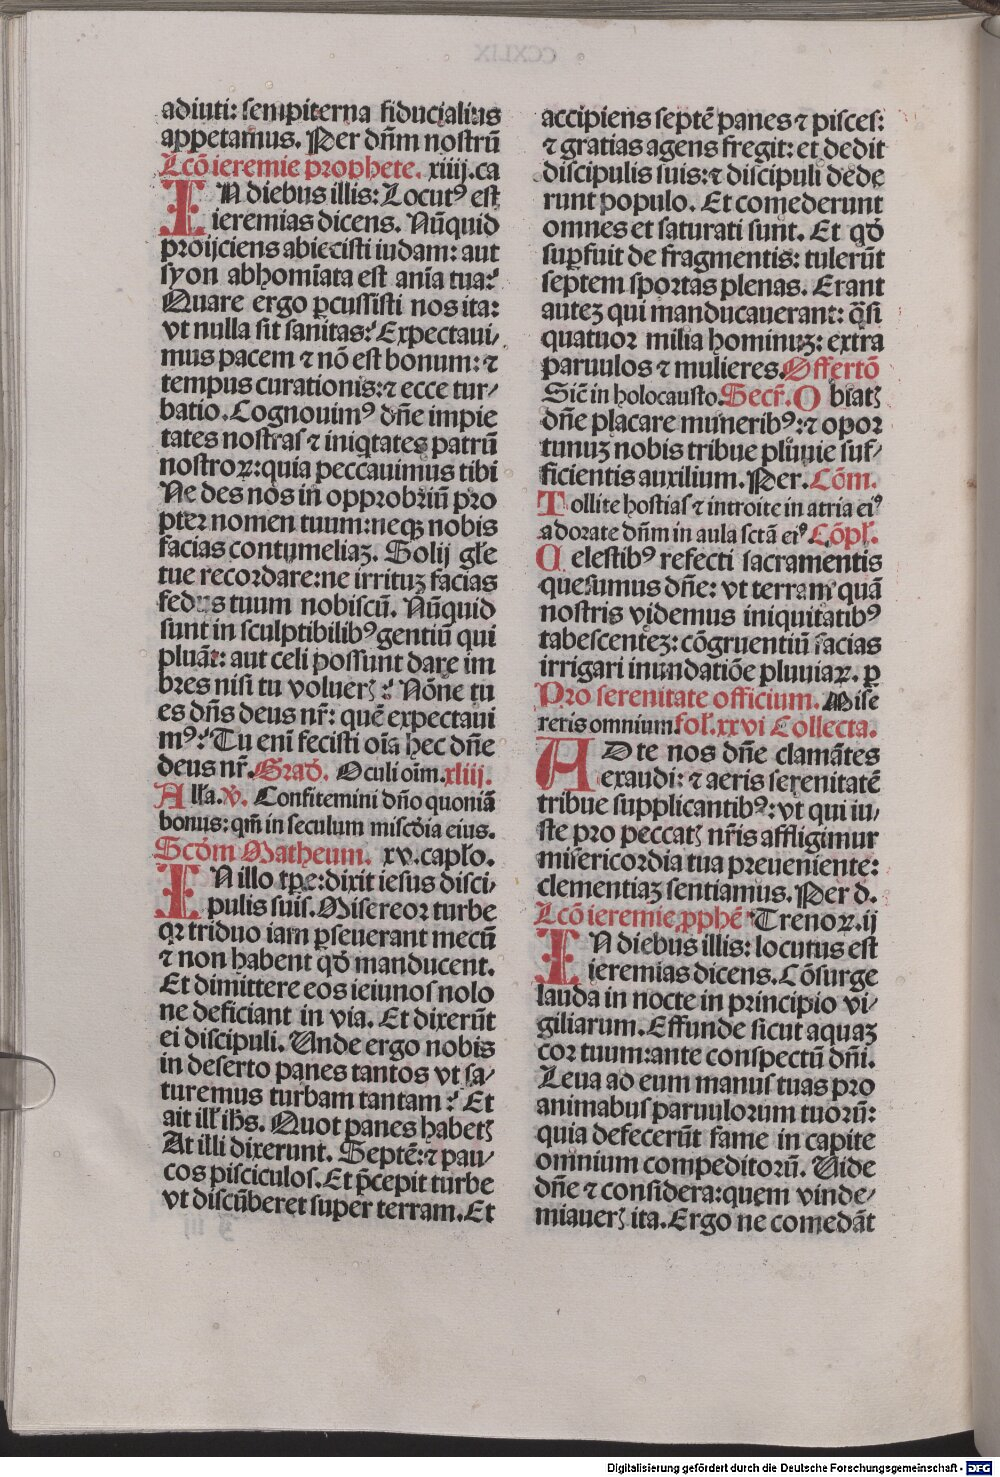 adiuti: sempiterna fiducialius
appetamus. Per dñm nostrū
Lcō ieremie prophete. xiiij.ca
IN diebus illis: Locutꝰ est
ieremias dicens. Nūquid
proijciens abiecisti iudam: aut
syon abhomīata est anīa tua?
Quare ergo ꝑcussisti nos ita:
vt nulla sit sanitas? Expectaui/
mus pacem ⁊ nō est bonum: ⁊
tempus curationis: ⁊ ecce tur/
batio. Cognouimꝰ dñe impie
tates nostras ⁊ iniqtates patrū
nostroꝝ: quia peccauimus tibi
Ne des nos in opprobriū pro
pter nomen tuum: neqꝫ nobis
facias contumeliaꝫ. Solij gl'e
tue recordare: ne irrituꝫ facias
fedus tuum nobiscū. Nūquid
sunt in sculptibilibꝰ gentiū qui
pluāt: aut celi possunt dare im
bres nisi tu voluerꝭ? Nōne tu
es dñs deus nr̄: quē expectaui
mꝰ? Tu enī fecisti oīa hec dñe
deus nr̄. Grad̄. Oculi oīm. xliij.
Alľa. v̄. Confitemini dño quoniā
bonus: qm̄ in seculum misc̄dia eius.
Scd̄m Matheum. xv. capľo.
IN illo tꝑe: dixit iesus disci/
pulis suis. Misereor turbe
qꝛ triduo iam ꝑseuerant mecū
⁊ non habent qd̄ manducent.
Et dimittere eos ieiunos nolo
ne deficiant in via. Et dixerūt
ei discipuli. Unde ergo nobis
in deserto panes tantos vt sa/
turemus turbam tantam? Et
ait illľ ih̄s. Quot panes habetꝭ
At illi dixerunt. Septē: ⁊ pau/
cos pisciculos. Et p̄cepit turbe
vt discūberet super terram. Et
accipiens septē panes ⁊ pisces:
⁊ gratias agens fregit: et dedit
discipulis suis: ⁊ discipuli dede
runt populo. Et comederunt
omnes et saturati sunt. Et qd̄
suꝑfuit de fragmentis: tulerūt
septem sportas plenas. Erant
auteꝫ qui manducauerant: q̄si
quatuor milia hominuꝫ: extra
paruulos ⁊ mulieres. Offertō
Sic̄ in holocausto. Secr̄. Oblatꝭ
dñe placare muneribꝰ: ⁊ opor
tunuꝫ nobis tribue pluuie suf/
ficientis auxilium. Per. Cōm.
Tollite hostias ⁊ introite in atria eiꝰ
adorate dñm in aula sctā eiꝰ Cōpľ.
Celestibꝰ refecti sacramentis
quesumus dñe: vt terram quā
nostris videmus iniquitatibꝰ
tabescenteꝫ: cōgruentiū facias
irrigari inundatiōe pluuiaꝝ. ꝑ
Pro serenitate officium. Mise
reris omnium. fol. xxvi Collecta.
AD te nos dñe clamātes
exaudi: ⁊ aeris serenitatē
tribue supplicantibꝰ: vt qui iu/
ste pro peccatꝭ nr̄is affligimur
misericordia tua preueniente:
clementiaꝫ sentiamus. Per d.
Lcō ieremie ꝓphē Trenoꝝ. ij
IN diebus illis: locutus est
ieremias dicens. Cōsurge
lauda in nocte in principio vi/
giliarum. Effunde sicut aquaꝫ
cor tuum: ante conspectū dñi.
Leua ad eum manus tuas pro
animabus paruulorum tuorū:
quia defecerūt fame in capite
omnium compeditorū. Vide
dñe ⁊ considera: quem vinde/
miauerꝭ ita. Ergo ne comedāt
Digitalisierung gefördert durch die Deutsche Forschungsgemeinschaft - DFG